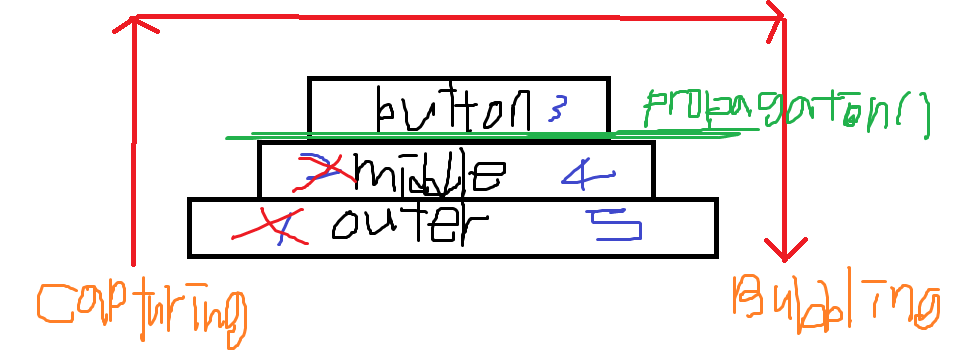 button 3
propagation()
2 middle 4
1 outer 5
Capturing
Bubbling